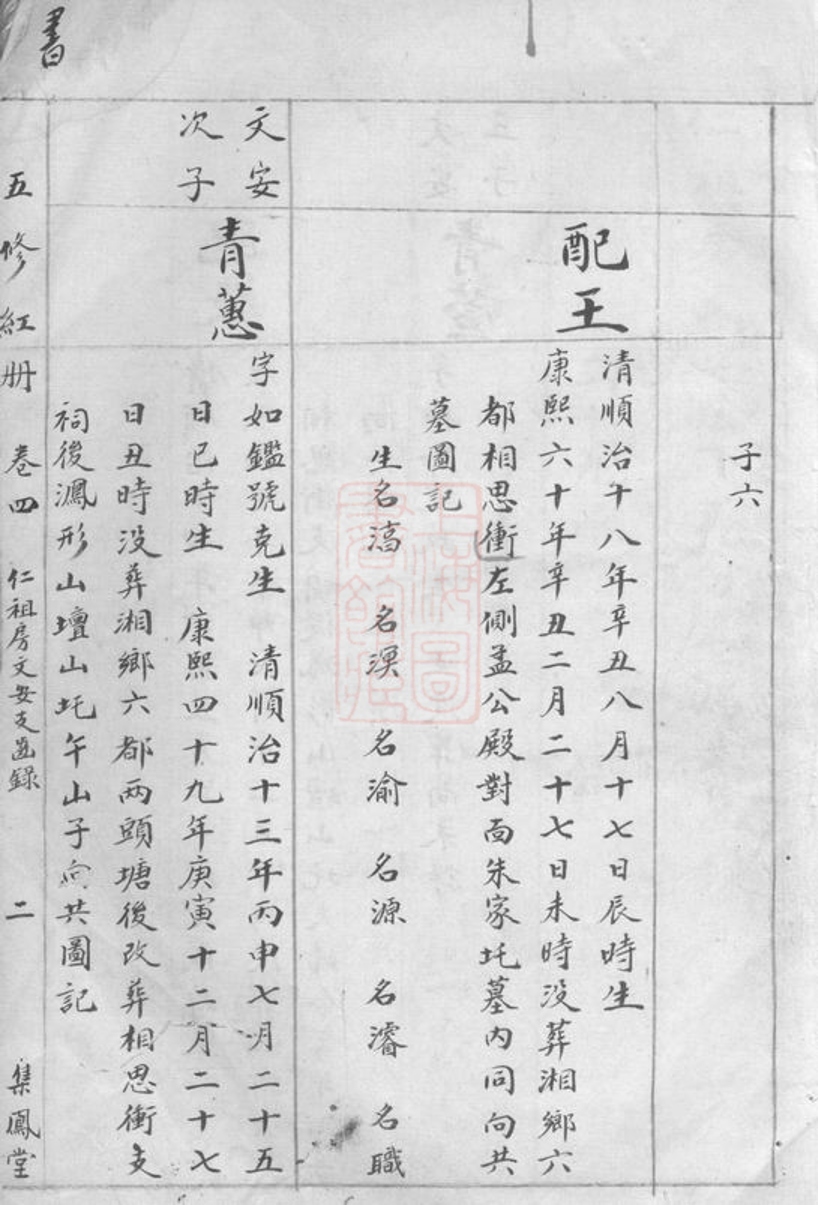 書
子六
配王
清順治十八年辛丑八月十七日辰時生
康熙六十年辛丑二月二十七日未時沒葬湘鄉六
都相思衝左側孟公殿對面朱家圫墓內同向共
墓圖記
生名滈 名淏 名渝 名源 名濬 名職
文安
次子
青蕙
字如鑑號克生 清順治十三年丙申七月二十五
日巳時生 康熙四十九年庚寅十二月二十七
日丑時没葬湘鄉六都兩頭塘後改葬相思衝支
祠後鳳形山壇山圫午山子向共圖記
五修紅册 卷四 仁祖房文安支齒錄 二 集鳳堂
上海圖書館藏